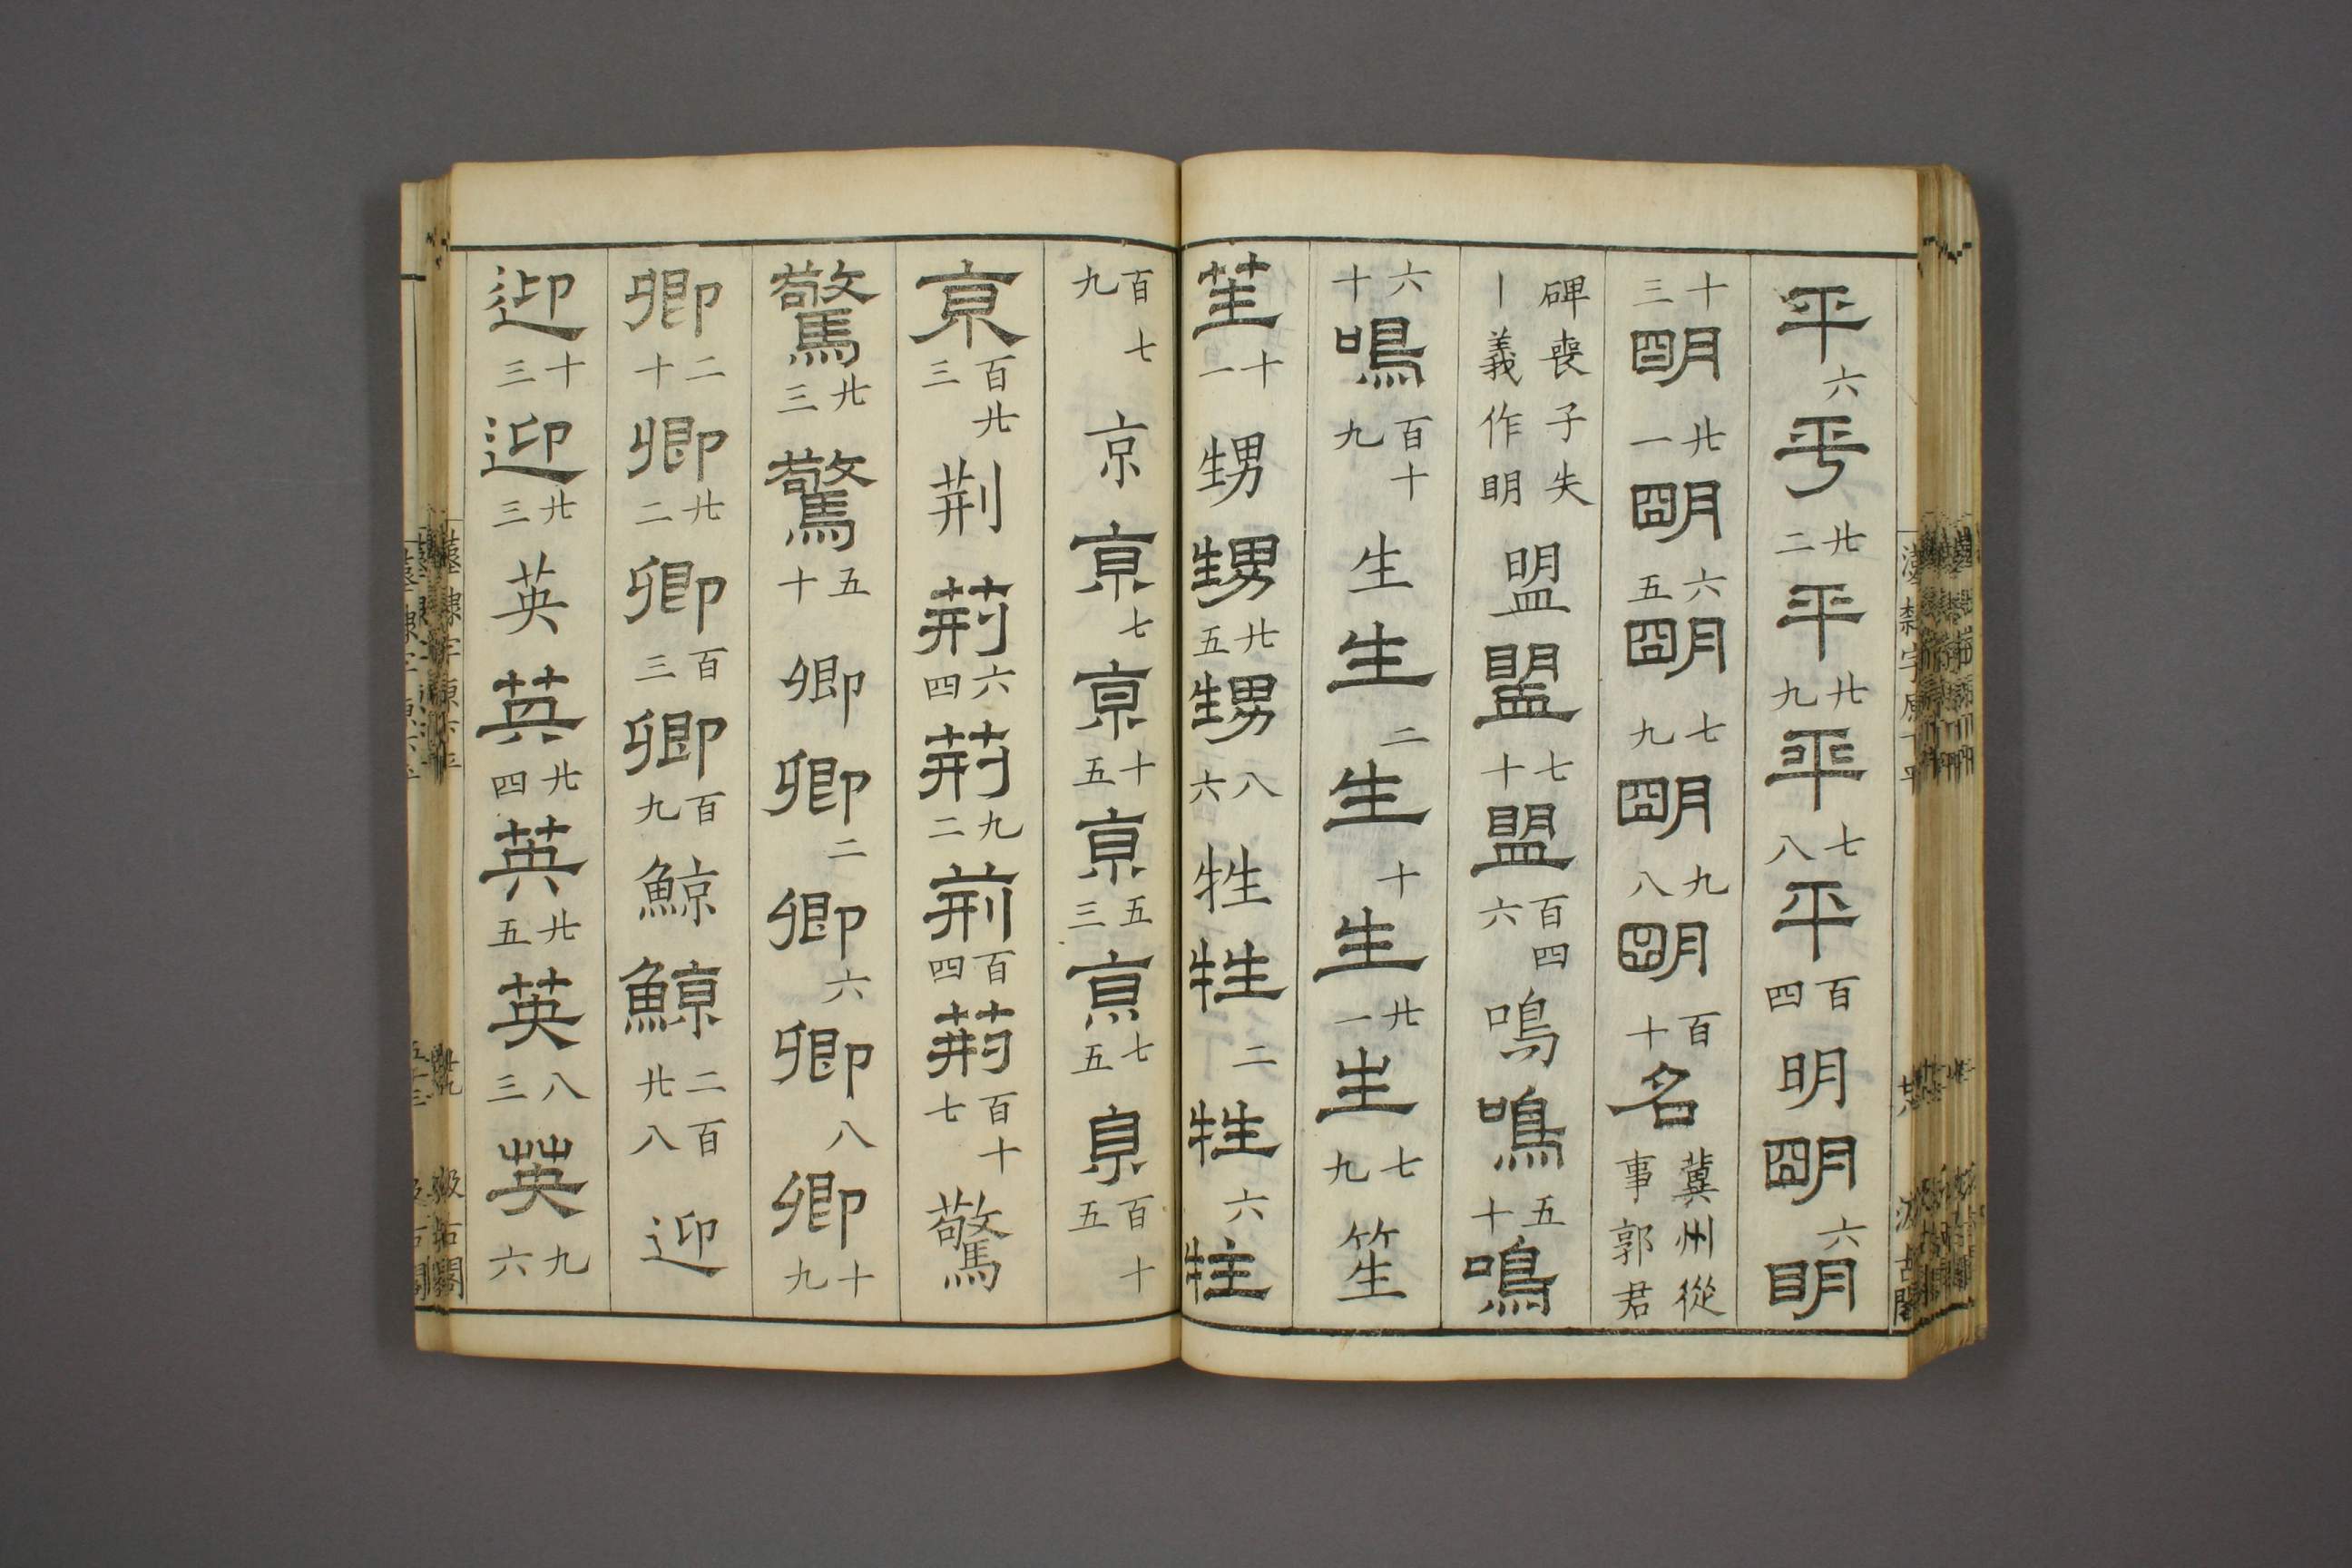 平六𠀠廿二平廿九平七八平百四明朙六明
十三朙廿一朙六五朙七九朙九八朙百十名冀州從事郭君
碑喪子失丨義作明盟盟七十盟百四六鳴鳴五十鳴
六十鳴百十九生生二生十生廿一生七九笙
笙十一甥甥廿五甥八六牲牲二牲六牲
百七九京京七京十五京五三京七五京百十五
京百廿三荆荆六四荆九二荆百四荆百十七驚
驚廿三驚五十卿卿二卿六卿八卿十九
卿二十卿廿二卿百三卿百九鯨鯨二百廿八迎
迎十三迎廿三英英廿四英廿五英八三英九六